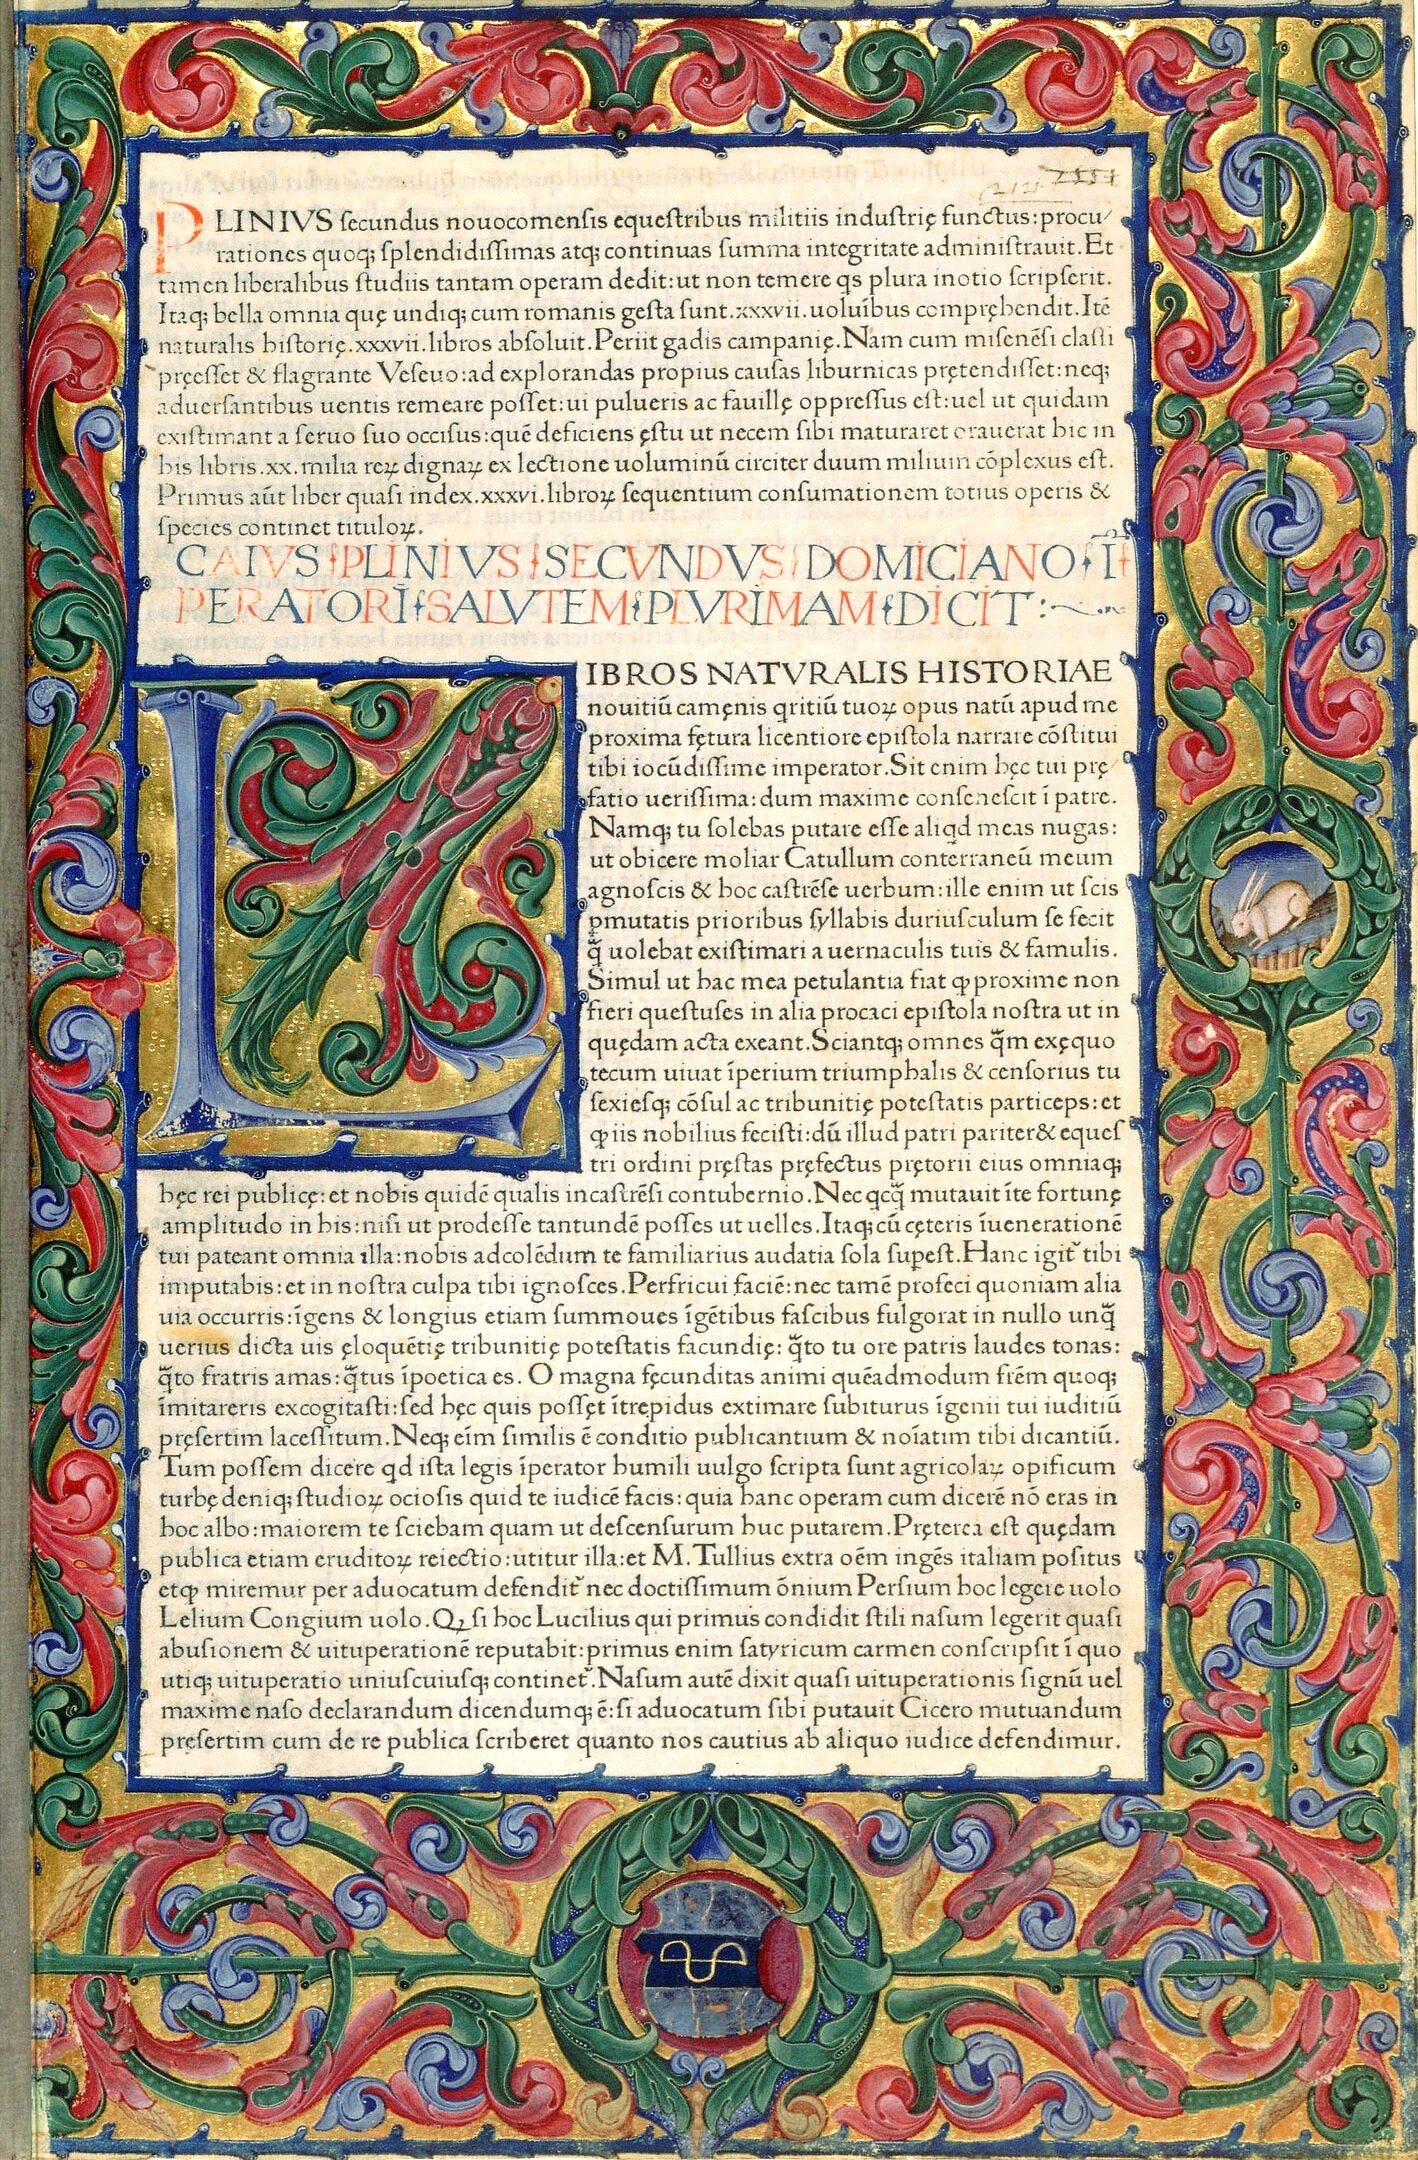 PLINIVS secundus nouocomensis equestribus militiis industrię functus: procu/
rationes quoq; splendidissimas atq; continuas summa integritate administrauit. Et
tamen liberalibus studiis tantam operam dedit: ut non temere qs plura inotio scripserit.
Itaq; bella omnia quę undiq; cum romanis gesta sunt .xxxvii. uoluībus compręhendit. Itē
naturalis historię .xxxvii. libros absoluit. Periit gadis campanię. Nam cum misenēsi classi
pręesset & flagrante Veseuo: ad explorandas propius causas liburnicas prętendisset: neq;
aduersantibus uentis remeare posset: ui pulueris ac fauillę oppressus est: uel ut quidam
existimant a seruo suo occisus: quē deficiens ęstu ut necem sibi maturaret orauerat hic in
his libris .xx. milia reꝝ dignaꝝ ex lectione uoluminū circiter duum milium cōplexus est.
Primus aūt liber quasi index .xxxvi. libroꝝ sequentium consumationem totius operis &
species continet tituloꝝ.
CAIVS PLINIVS SECVNDVS DOMICIANO I
PERATORI SALVTEM PLVRIMAM DICIT:
LIBROS NATVRALIS HISTORIAE
nouitiū camęnis qritiū tuoꝝ opus natū apud me
proxima fętura licentiore epistola narrare cōstitui
tibi iocūdissime imperator. Sit enim hęc tui prę
fatio uerissima: dum maxime consenescit ī patre.
Namq; tu solebas putare esse aliqd meas nugas:
ut obicere moliar Catullum conterraneū meum
agnoscis & hoc castrēse uerbum: ille enim ut scis
ꝑmutatis prioribus syllabis duriusculum se fecit
q̄ uolebat existimari a uernaculis tuis & famulis.
Simul ut hac mea petulantia fiat ꝙ proxime non
fieri questuses in alia procaci epistola nostra ut in
quędam acta exeant. Sciantq; omnes q̄m exęquo
tecum uiuat īperium triumphalis & censorius tu
sexiesq; cōsul ac tribunitię potestatis particeps: et
ꝙ iis nobilius fecisti: dū illud patri pariter & eques
tri ordini pręstas pręfectus prętorii eius omniaq;
hęc rei publicę: et nobis quidē qualis incastrēsi contubernio. Nec qcq̄ mutauit īte fortunę
amplitudo in his: nisi ut prodesse tantundē posses ut uelles. Itaq; cū cęteris īuenerationē
tui pateant omnia illa: nobis adcolēdum te familiarius audatia sola suꝑest. Hanc igit᷑ tibi
imputabis: et in nostra culpa tibi ignosces. Perfricui faciē: nec tamē profeci quoniam alia
uia occurris: īgens & longius etiam summoues īgētibus fascibus fulgorat in nullo unq̄
uerius dicta uis ęloquētię tribunitię potestatis facundię: q̄to tu ore patris laudes tonas:
q̄to fratris amas: q̄tus īpoetica es. O magna fęcunditas animi quēadmodum frēm quoq;
īmitareris excogitasti: sed hęc quis possęt ītrepidus extimare subiturus īgenii tui iuditiū
pręsertim lacessitum. Neq; eīm similis ē conditio publicantium & noīatim tibi dicantiū.
Tum possem dicere qd ista legis īperator humili uulgo scripta sunt agricolaꝝ opificum
turbę deniq; studioꝝ ociosis quid te iudicē facis: quia hanc operam cum dicerē nō eras in
hoc albo: maiorem te sciebam quam ut descensurum huc putarem. Pręterea est quędam
publica etiam eruditoꝝ reiectio: utitur illa: et M. Tullius extra oēm ingēs italiam positus
etꝙ miremur per aduocatum defendit᷑ nec doctissimum ōnium Persium hoc legere uolo
Lelium Congium uolo. Qꝫ si hoc Lucilius qui primus condidit stili nasum legerit quasi
abusionem & uituperationē reputabit: primus enim satyricum carmen conscripsit ī quo
utiq; uituperatio uniuscuiusq; continet᷑. Nasum autē dixit quasi uituperationis signū uel
maxime naso declarandum dicendumq; ē: si aduocatum sibi putauit Cicero mutuandum
pręsertim cum de re publica scriberet quanto nos cautius ab aliquo iudice defendimur.